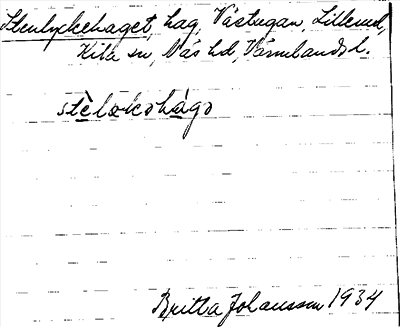 Stenlyckehaget, hag, Västugan, Lillerud,
Kila sn, Näs hd, Värmlands l.
Britta Johansson 1934